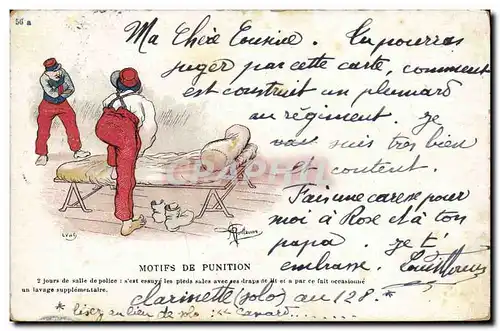 56 a
Ma Chère Cousine. Tu pourras
juger par cette carte, comment
est construit un plumard
au régiment. Je
vais suis très bien
et content.
Fais une caresse pour
moi à Rose et à ton
papa. Je t'
embrasse.
MOTIFS DE PUNITION
2 jours de salle de police : s'est essuyé les pieds sales avec ses draps de lit et a par ce fait occasionné
un lavage supplémentaire.
clarinette (solo) au 128. *
* lisez au lieu de solo : Canard